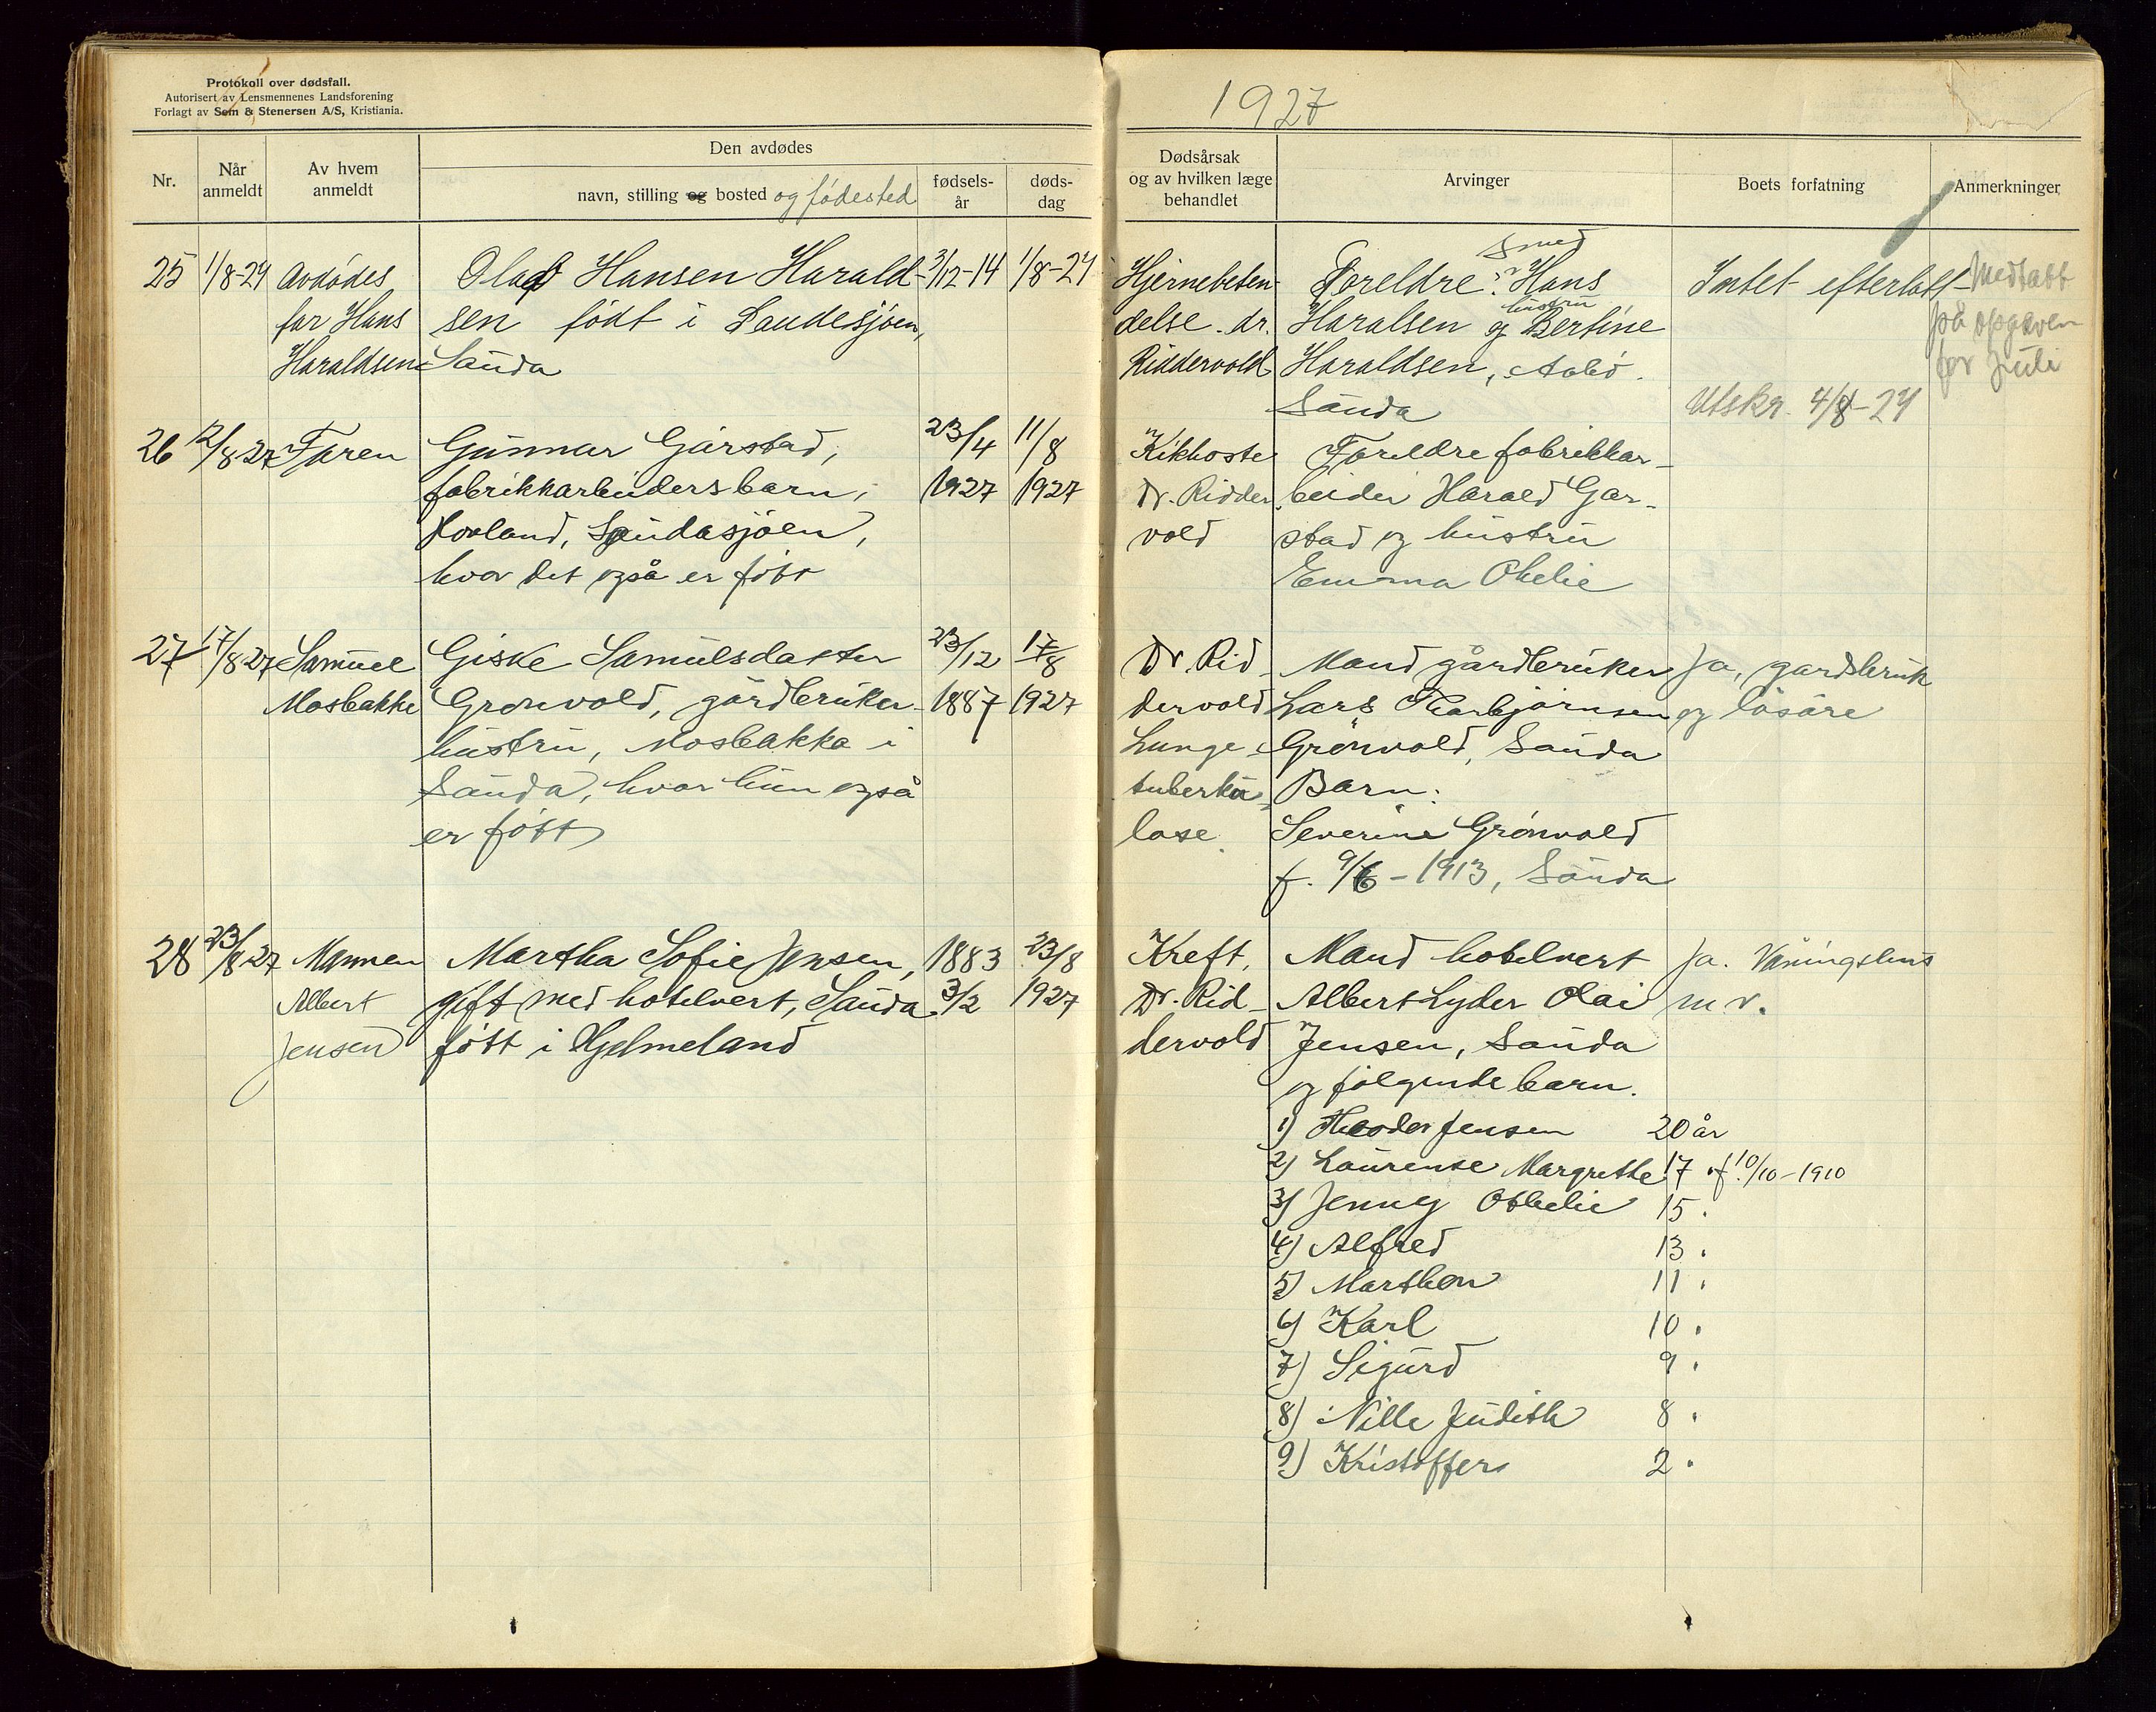 Protokoll over dødsfall.
Autorisert av Lensmennenes Landsforening
Forlagt av Sem & Stenersen A/S, Kristiania.
1927
Nr.
Når anmeldt
Av hvem anmeldt
Den avdødes
navn, stilling og bosted og fødested
fødsels-år
døds-dag
Dødsårsak
og av hvilken læge
behandlet
Arvinger
Boets forfatning
Anmerkninger
25 1/8-27
Avdødes
far Hans
Haraldsen
Olaf Hansen Harald-
sen født i Saudesjøen,
Sauda
3/12-14
1/8-27
Hjernebeten-
delse. dr.
Riddervold
Foreldre: Smed Hans
Haralsen og hustru Bertine
Haraldsen, Aabø.
Sauda
Intet efterlatt
Utskr. 4/8-27
Medtatt
på opgaven
for Juli
26 12/8-27
Faren
Gunnar Garstad,
fabrikkarbeidersbarn,
Hovland, Saudasjøen,
hvor det også er født
23/4
1927
11/8
1927
Kikhoste
Dr. Ridder-
vold
Foreldre fabrikkar-
beider Harald Gar-
stad og hustru
Emma Othelie
27 17/8-27
Samuel
Mosbakke
Giske Samulsdatter
Grønvold, gårdbruker-
hustru, Mosbakka i
Sauda, hvor hun også
er født
23/12
1887
17/8
1927
Dr. Rid-
dervold
Lunge-
tuberku-
lose.
Mand gårdbruker
Lars Torbjørnsen
Grønvold, Sauda
Barn:
Severine Grønvold
f. 9/6-1913, Sauda
Ja, gardsbruk
og løsøre
28 23/8-27
Mannen
Albert
Jensen
Martha Sofie Jensen,
gift med hotelvert, Sauda.
født i Hjelmeland
1883
3/2
23/8
1927
Kreft,
Dr. Rid-
dervold
Mand hotelvert
Albert Lyder Olai
Jensen, Sauda
og følgende barn.
Ja. Våningshus
m.v.
1) Theodor Jensen 20 år
2) Laurense Margrethe 17 " f. 10/10-1910
3) Jenny Othelie 15 "
4) Alfred 13 "
5) Marthon 11 "
6) Karl 10 "
7) Sigurd 9 "
8) Nille Judith 8 "
9) Kristoffer 2 "